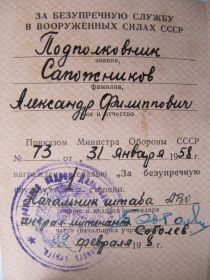 ЗА БЕЗУПРЕЧНУЮ СЛУЖБУ
В ВООРУЖЕННЫХ СИЛАХ СССР
Подполковник
звание,
Сапожников
фамилия,
Александр Филиппович
имя и отчество
Приказом Министра Обороны СССР
№ 73 от 31 января 1958 г.
награжден медалью „За безупречную
службу" степени.
Начальник штаба
генерал-лейтенант
Соболев
февраля